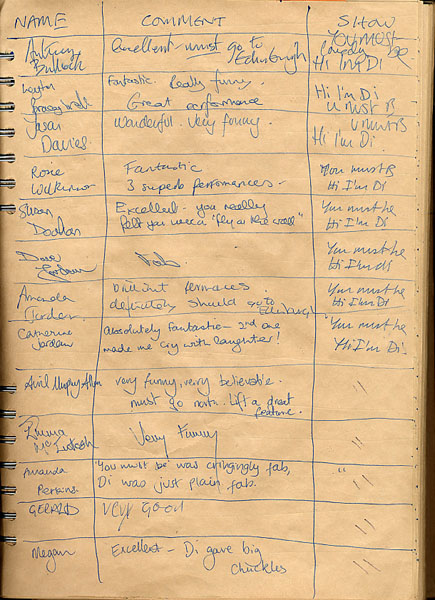 NAME COMMENT SHOW
Antony Excellent - must go to You must be
Bullock Edinburgh Comedy
Hi I'm Di
Fantastic. Really funny.
Great performance Hi I'm Di
U must B
Jason Wonderful. Very funny. U must B
Davies. Hi I'm Di.
Rosie Fantastic You must B
Wilkinson 3 superb performances - Hi I'm Di
Susan Excellent - you really You must be
felt you were a "fly on the wall" Hi I'm Di
Dave Fab You must be
Hi I'm di
Amanda brilliant You must be
Jordan definitely should go to Hi I'm Di
Edinburgh
Catherine Absolutely Fantastic - 2nd one "You must be
Jordan made me cry with laughter! Hi I'm Di.
Avril very funny, very believable. "
must go north. Lift a great
feature.
Emma Very Funny "
McIntosh
Amanda 'You must be' was cringingly fab, "
Perkins. Di was just plain fab. "
GERARD very good "
Megan Excellent - Di gave big "
chuckles